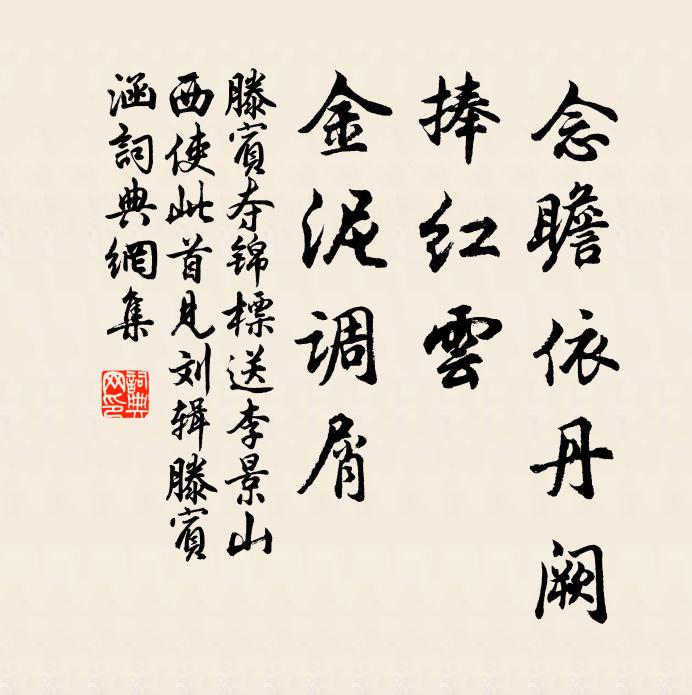 念瞻依丹阙
捧红雲
金泥调屑
滕賓夺锦標送李景山
西使此首見刘辑滕賓
涵詞典網集
詞典网印